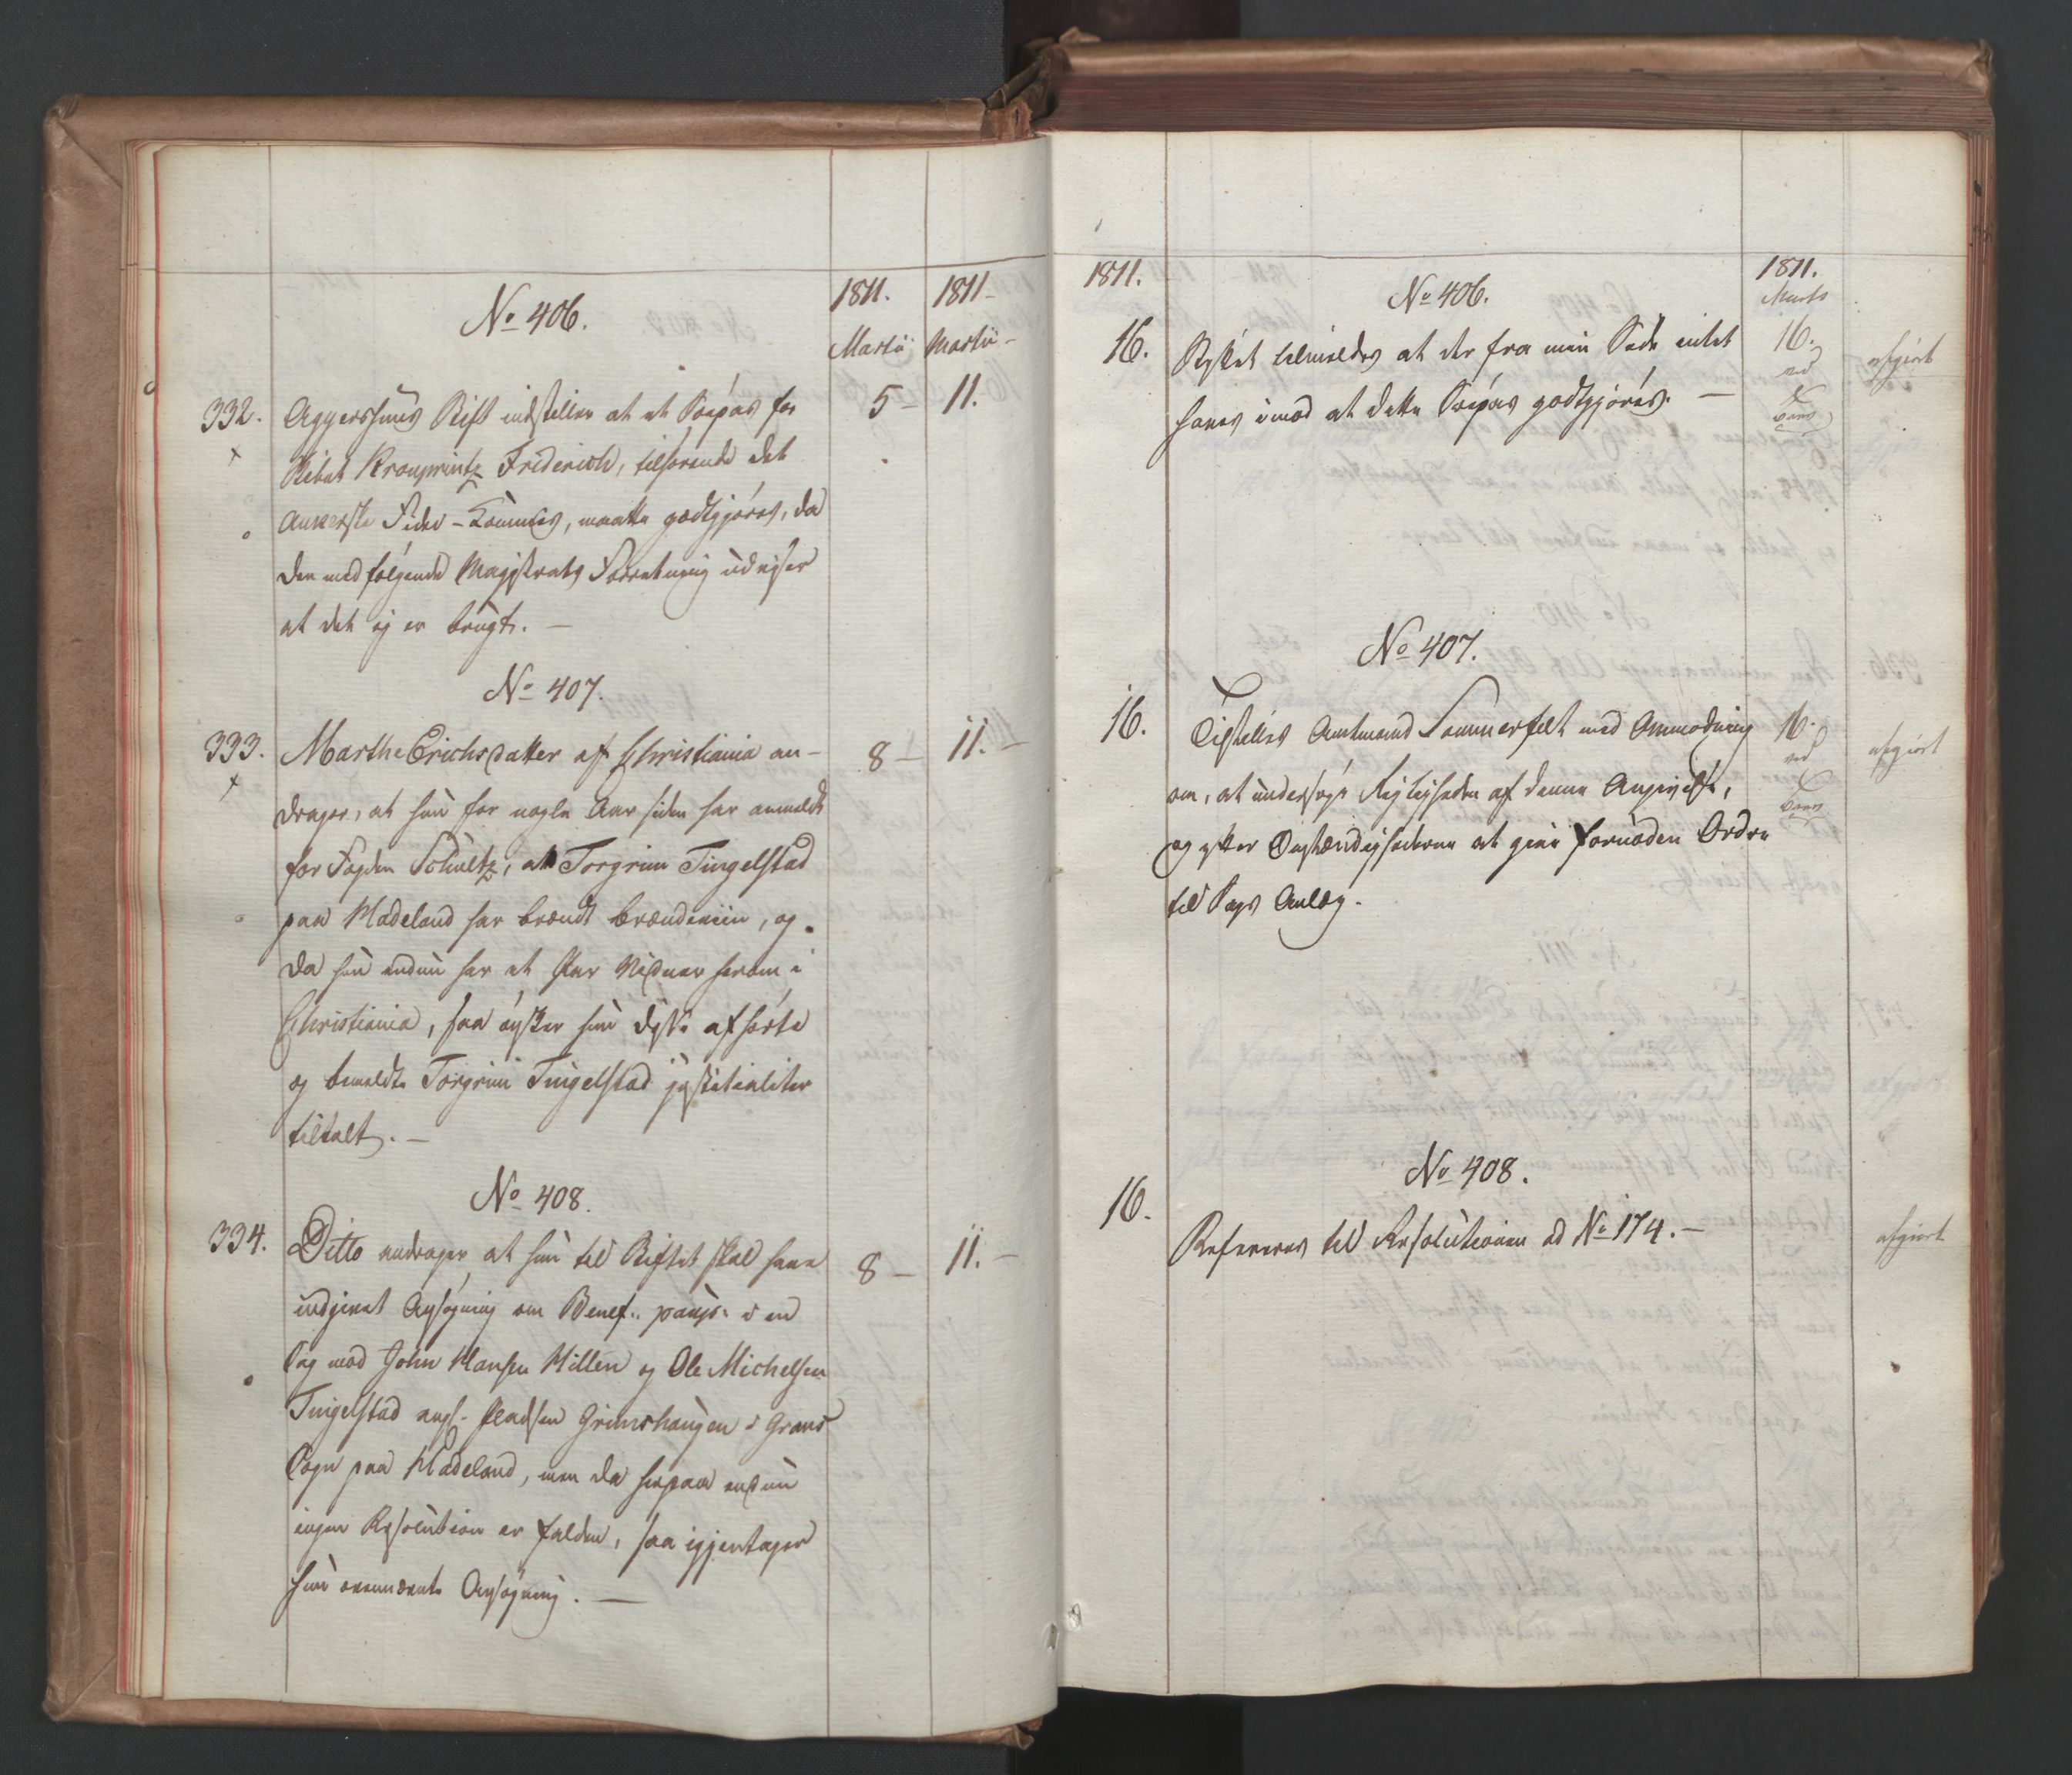 1811. 1811-
No 406.
Martii Martii-
332. Aggershuus Stift indstiller at et Søepas for 5- 11.
Skibet Kronprintz Friderich, tilhørende det
Ankerske Fidei-Commis, maatte godtgjøres, da
den medfølgende Magistrats Forretning udviser
at det ej er brugt. -
No 407.
333. Marthe Erichsdatter af Christiania an- 8- 11.-
drager, at hun for nogle Aar siden har anmeldt
for Fogden Schultz, at Torgrim Tingelstad
paa Hadeland har brændt Brændeviin, og
da hun endnu har et Par Vidner herom i
Christiania, saa ønsker hun disse afhørte
og bemeldte Torgrim Tingelstad justitialiter
tiltalt. -
No 408.
334. Ditto andrager at hun til Stiftet skal have 8- 11.-
indgivet Ansøgning om Benef. paup. i en
Sag mod John Hansen Hillen og Ole Michelsen
Tingelstad ang. Pladsen Grimshaugen i Grans
Sogn paa Hadeland, men da herpaa endnu
ingen Resolution er falden, saa igjentager
hun ommeldte Ansøgning. -
1811. 1811.
No 406. Marts
16. Stiftet tilmeldes at der fra min Side intet 16. afgiort
haves imod at dette Søepas godtgjøres. - ved
No 407.
16. Tilstilles Amtmand Sommerfelt med Anmodning 16. afgiort
om, at undersøge Rigtigheden af denne Angivelse, ved
og efter Omstændighederne at give fornøden Ordre
til Sags Anlæg.
No 408.
16. Refereres til Resolutionen ad No 174. - afgiort